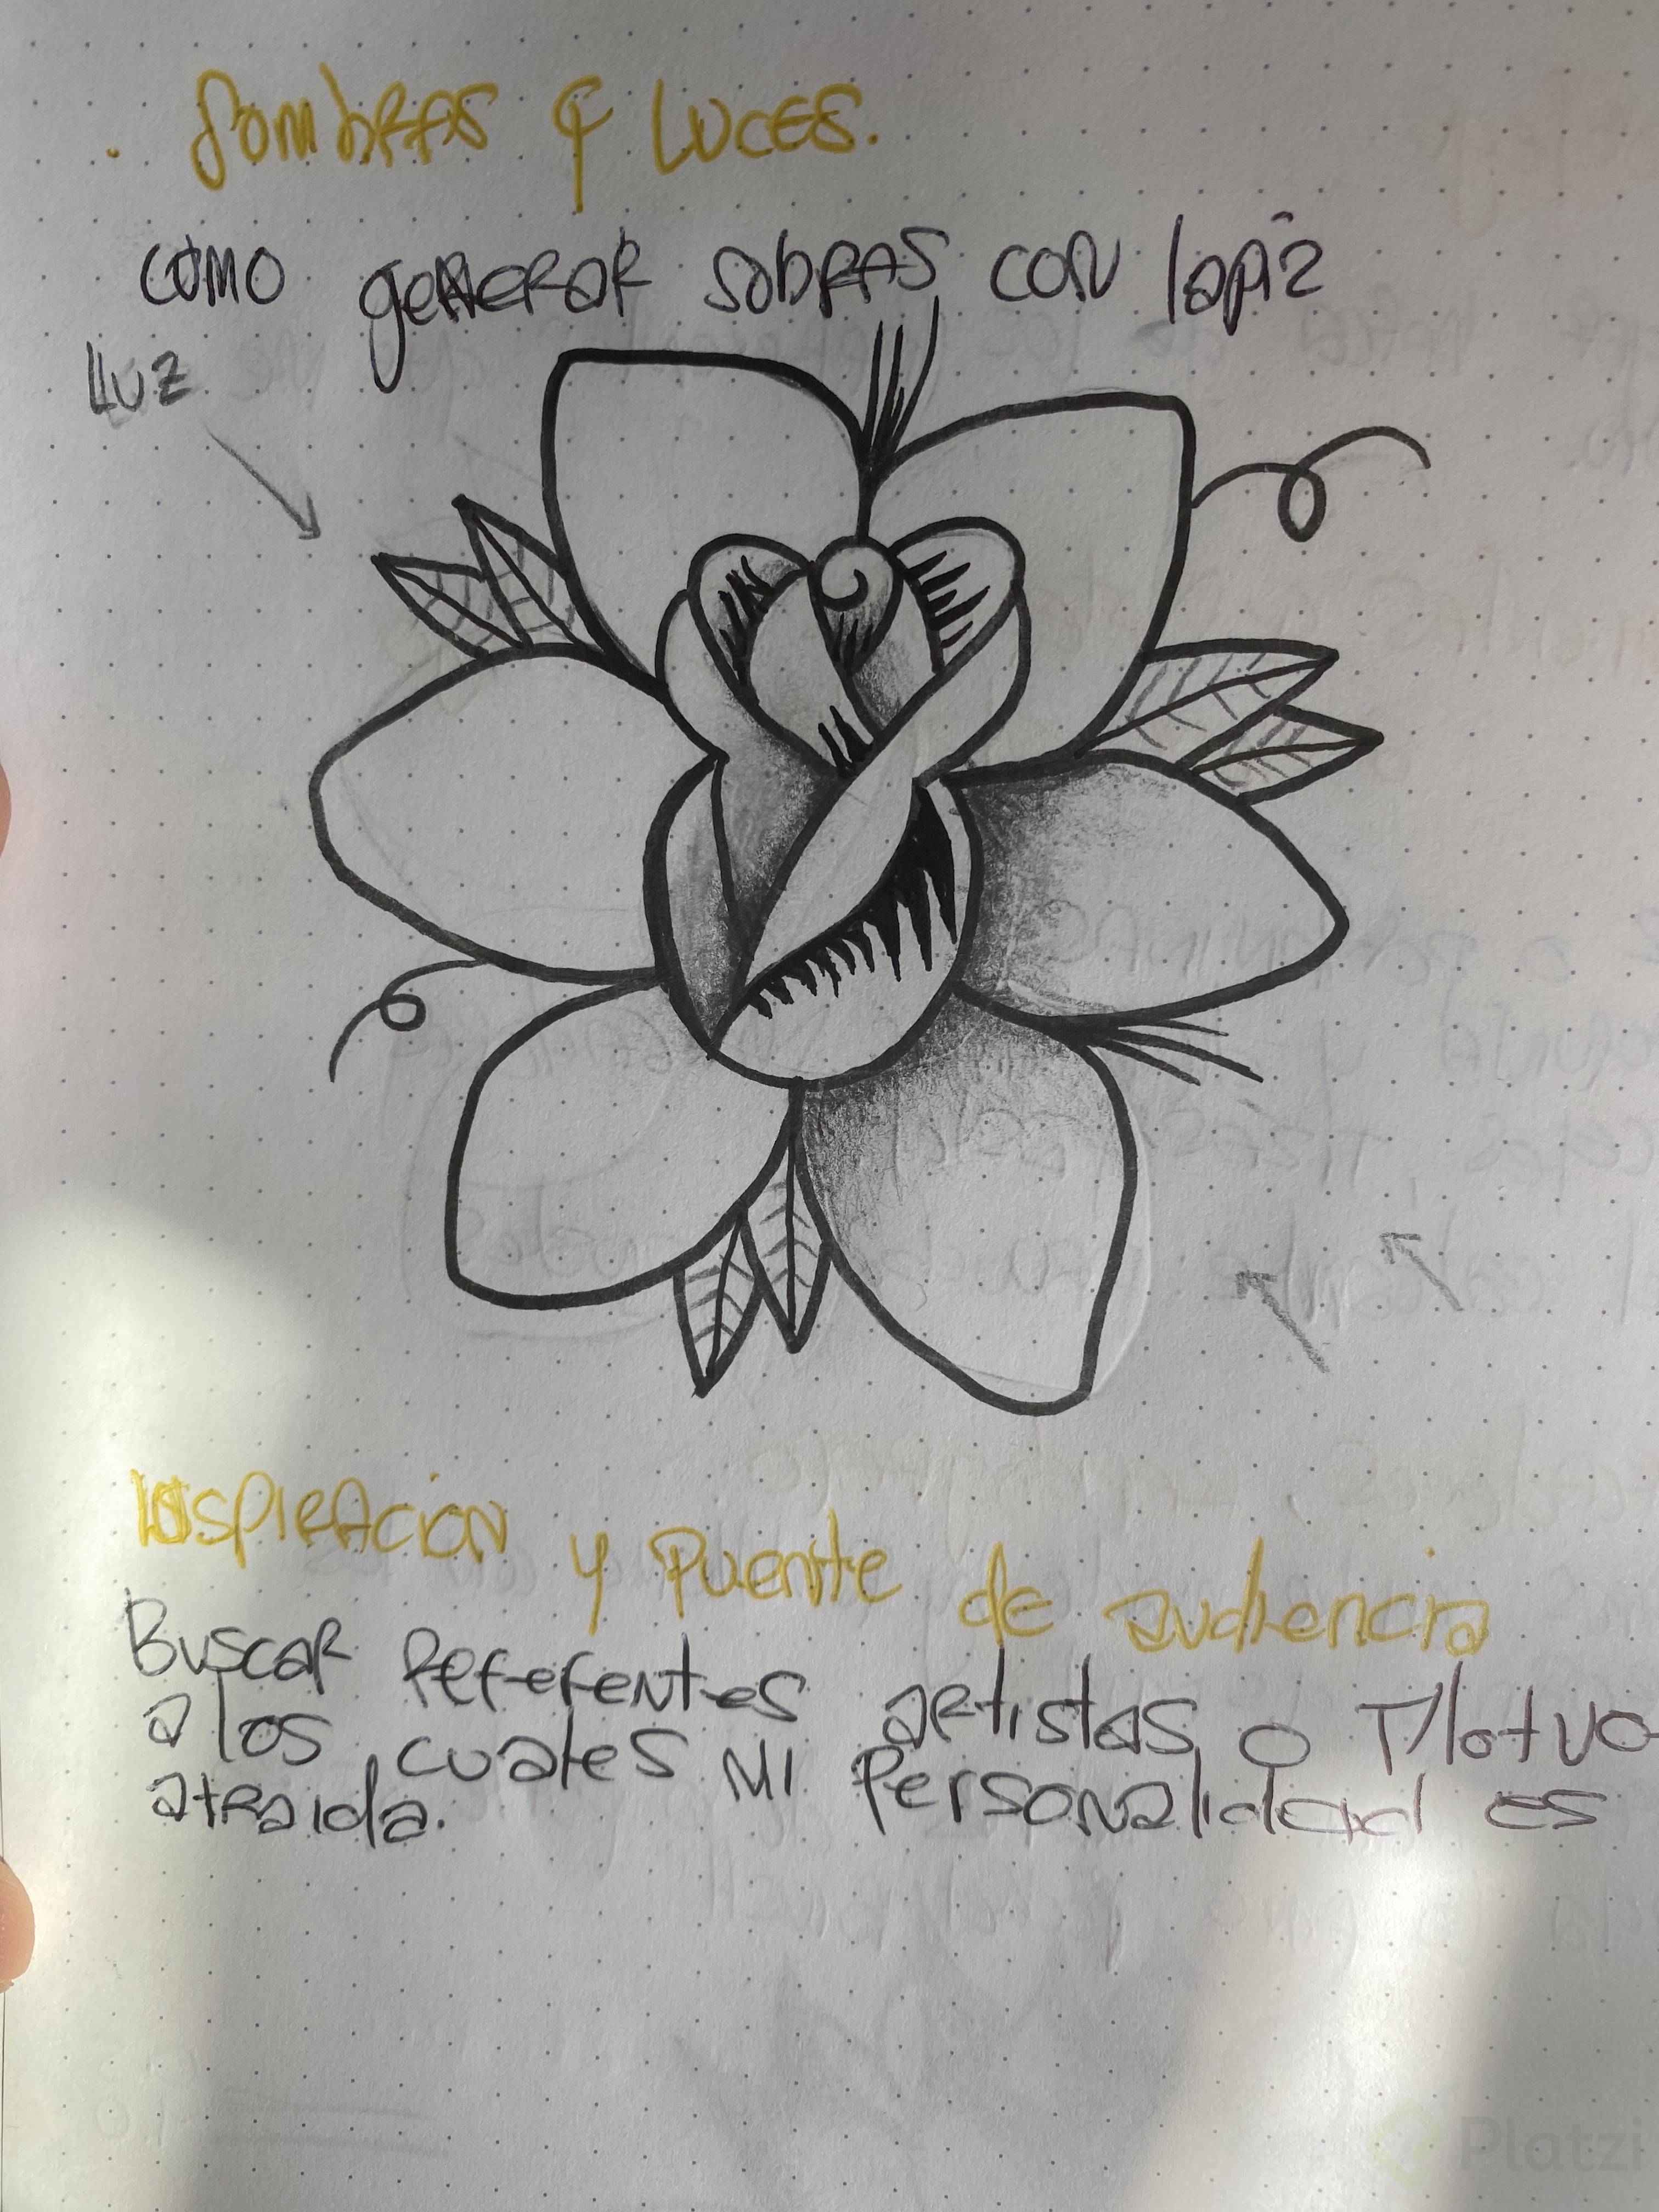 . Sombras y Luces.
como generar sobras con lapiz
Luz
Inspiracion y Puente de audiencia
Buscar Referentes artistas o
a los cuales mi Personalidad es
atraida.
Platzi